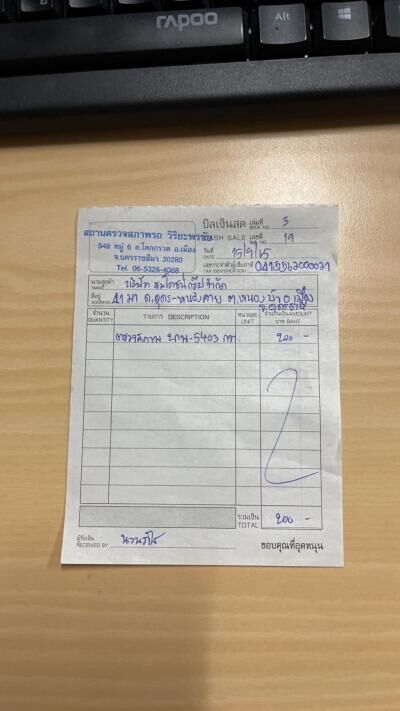 rapoo
Alt
บิลเงินสด เล่มที่ BOOK NO. 3
CASH SALE เลขที่ 19
สถานตรวจสภาพรถ วิริยะพรชัย
548 หมู่ 6 ต.โคกกรวด อ.เมือง
จ.นครราชสีมา 30280
Tel. 06-5326-4088
วันที่ DATE 15/9/65
เลขประจำตัวผู้เสียภาษี
TAX IDENTIFICATION
นามลูกค้า NAME บริษัท
ที่อยู่ ADDRESS 41 ม.1 ถ.อุดร-หนองคาย ต.หนองบัว อ.เมือง
จ.อุดรธานี
จำนวน QUANTITY รายการ DESCRIPTION หน่วยละ UNIT จำนวนเงิน AMOUNT บาท BAHT
ตรวจสภาพ 5403 200 -
รวมเงิน TOTAL 200 -
ผู้รับเงิน RECEIVED BY
ขอบคุณที่อุดหนุน